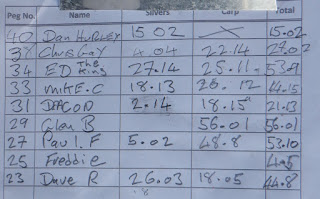 Peg No. Name Silvers Carp Total
40 Dan HURLEY 15 02 15.02
Chris Gay 4 04 22.14
34 ED The King 27.14 25.11
33 MIKE.C 18.13 44.15
31 DEACON 2.14 18.15 21.13
29 Glen B 56.01 56.01
27 Paul. F 5.02 48.8 53.10
25 Freddie
23 Dave R 26.03 18.05 44.8